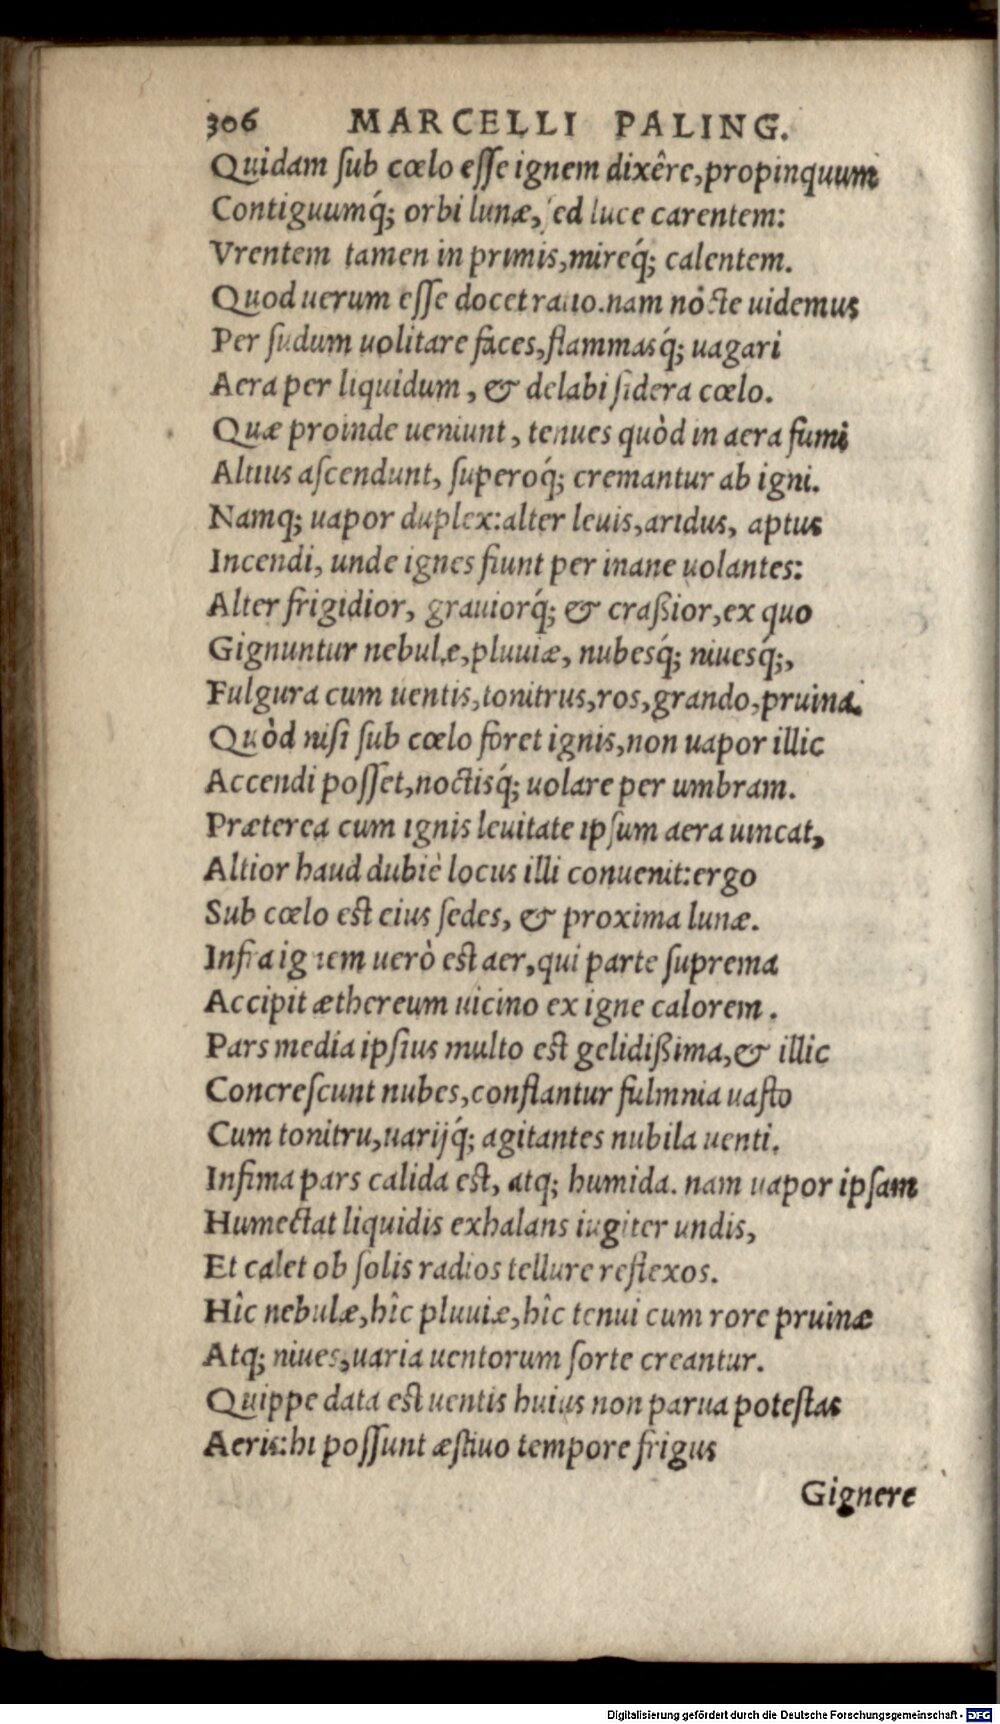 306 MARCELLI PALING.
Quidam ſub cœlo eſſe ignem dixêre, propinquum
Contiguumq́; orbi lunæ, ſed luce carentem:
Vrentem tamen in primis, mireq́; calentem.
Quod uerum eſſe docet ratio. nam nocte uidemus
Per ſudum uolitare faces, flammasq́; uagari
Aera per liquidum, & delabi ſidera cœlo.
Quæ proinde ueniunt, tenues quòd in aera fumi
Altius aſcendunt, ſuperoq́; cremantur ab igni.
Namq; uapor duplex: alter leuis, aridus, aptus
Incendi, unde ignes fiunt per inane uolantes:
Alter frigidior, grauiorq́; & craßior, ex quo
Gignuntur nebulæ, pluuiæ, nubesq́; niuesq́;,
Fulgura cum uentis, tonitrus, ros, grando, pruina.
Quòd niſi ſub cœlo foret ignis, non uapor illic
Accendi poſſet, noctisq́; uolare per umbram.
Præterea cum ignis leuitate ipſum aera uincat,
Altior haud dubiè locus illi conuenit: ergo
Sub cœlo est eius ſedes, & proxima lunæ.
Infra ignem uerò est aer, qui parte ſuprema
Accipit æthereum uicino ex igne calorem.
Pars media ipſius multo est gelidißima, & illic
Concreſcunt nubes, conflantur fulmnia uaſto
Cum tonitru, uarijq́; agitantes nubila uenti.
Infima pars calida est, atq; humida. nam uapor ipſam
Humectat liquidis exhalans iugiter undis,
Et calet ob ſolis radios tellure reflexos.
Hîc nebulæ, hîc pluuiæ, hîc tenui cum rore pruinæ
Atq; niues, uaria uentorum ſorte creantur.
Quippe data est uentis huius non parua poteſtas
Aeris: hi poſſunt æſtiuo tempore frigus
Gignere
Digitalisierung gefördert durch die Deutsche Forschungsgemeinschaft - DFG